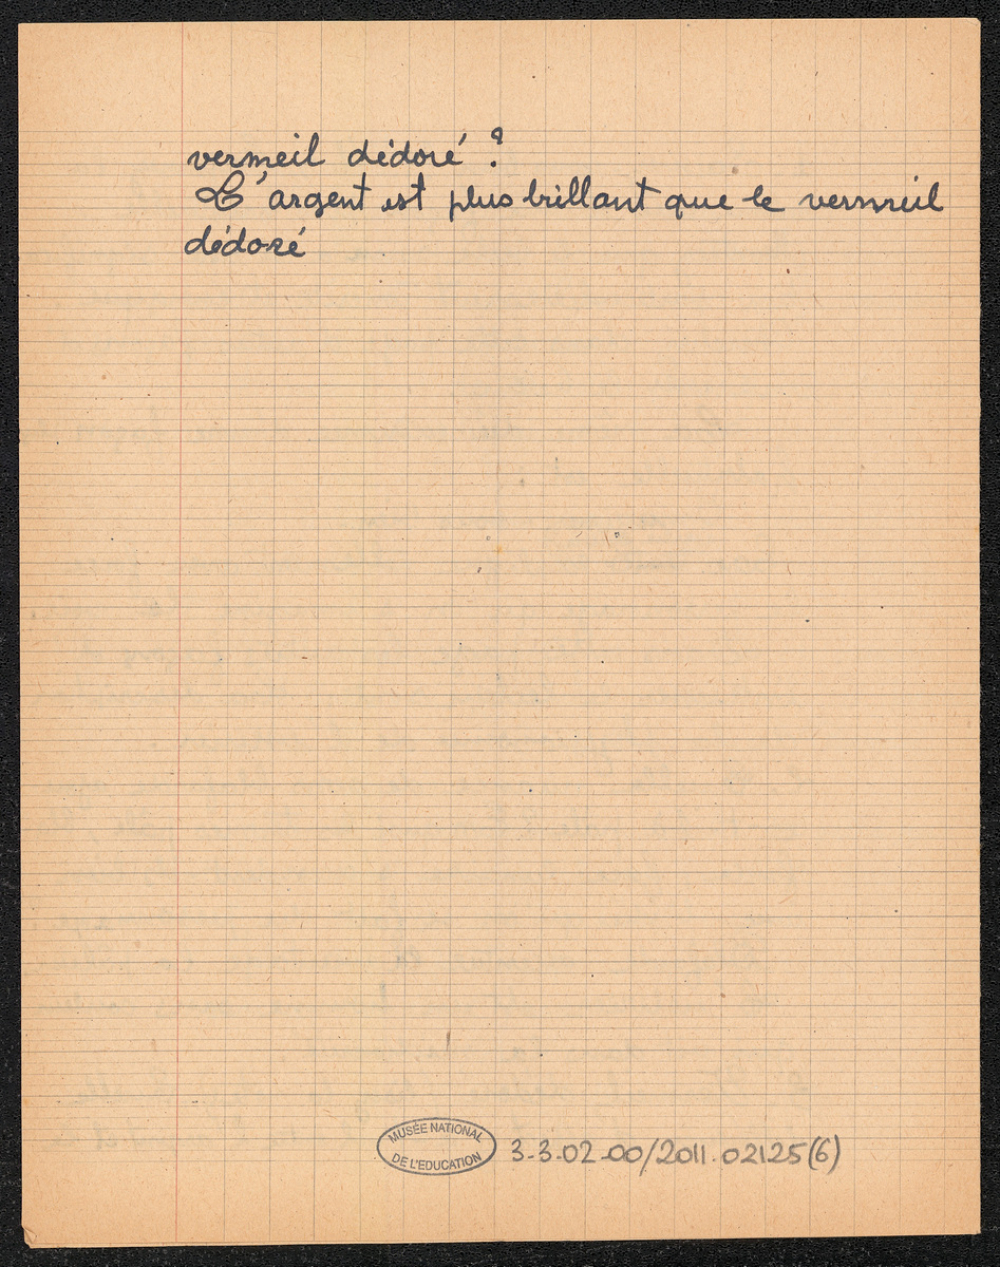 vermeil dédoré ?
L'argent est plus brillant que le vermeil
dédoré
MUSÉE NATIONAL
DE L'EDUCATION
3-3-02-00/2011.02125(6)